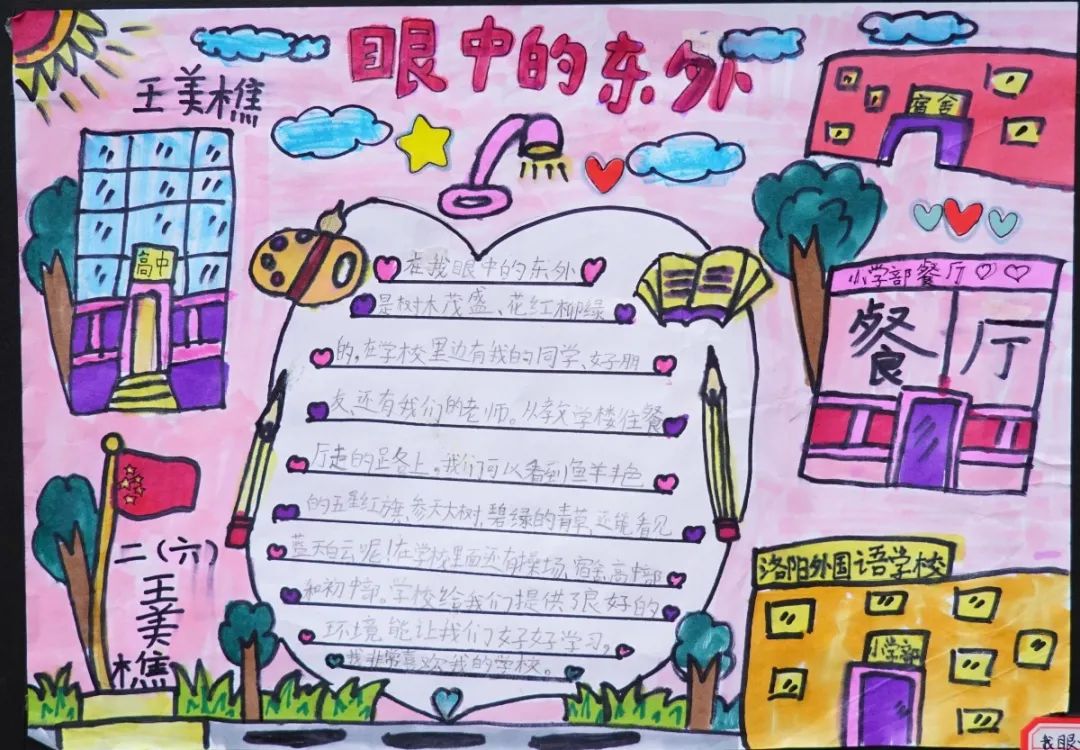 眼中的东外
王美樵
宿舍
高中
小学部餐厅
餐厅
在我眼中的东外
是树木茂盛、花红柳绿
的,在学校里边有我的同学、好朋
友,还有我们的老师。从教学楼往餐
厅走的足各上。我们可以看到鱼羊丰色
的五星红旗,参天大树,碧绿的青草,还能看见
蓝天白云呢!在学校里面还有操场、宿舍、高中部
和初中部。学校给我们提供了良好的
环境,能让我们好好学习。
我非常喜欢我的学校。
二(六)
王美樵
洛阳外国语学校
小学部
我眼